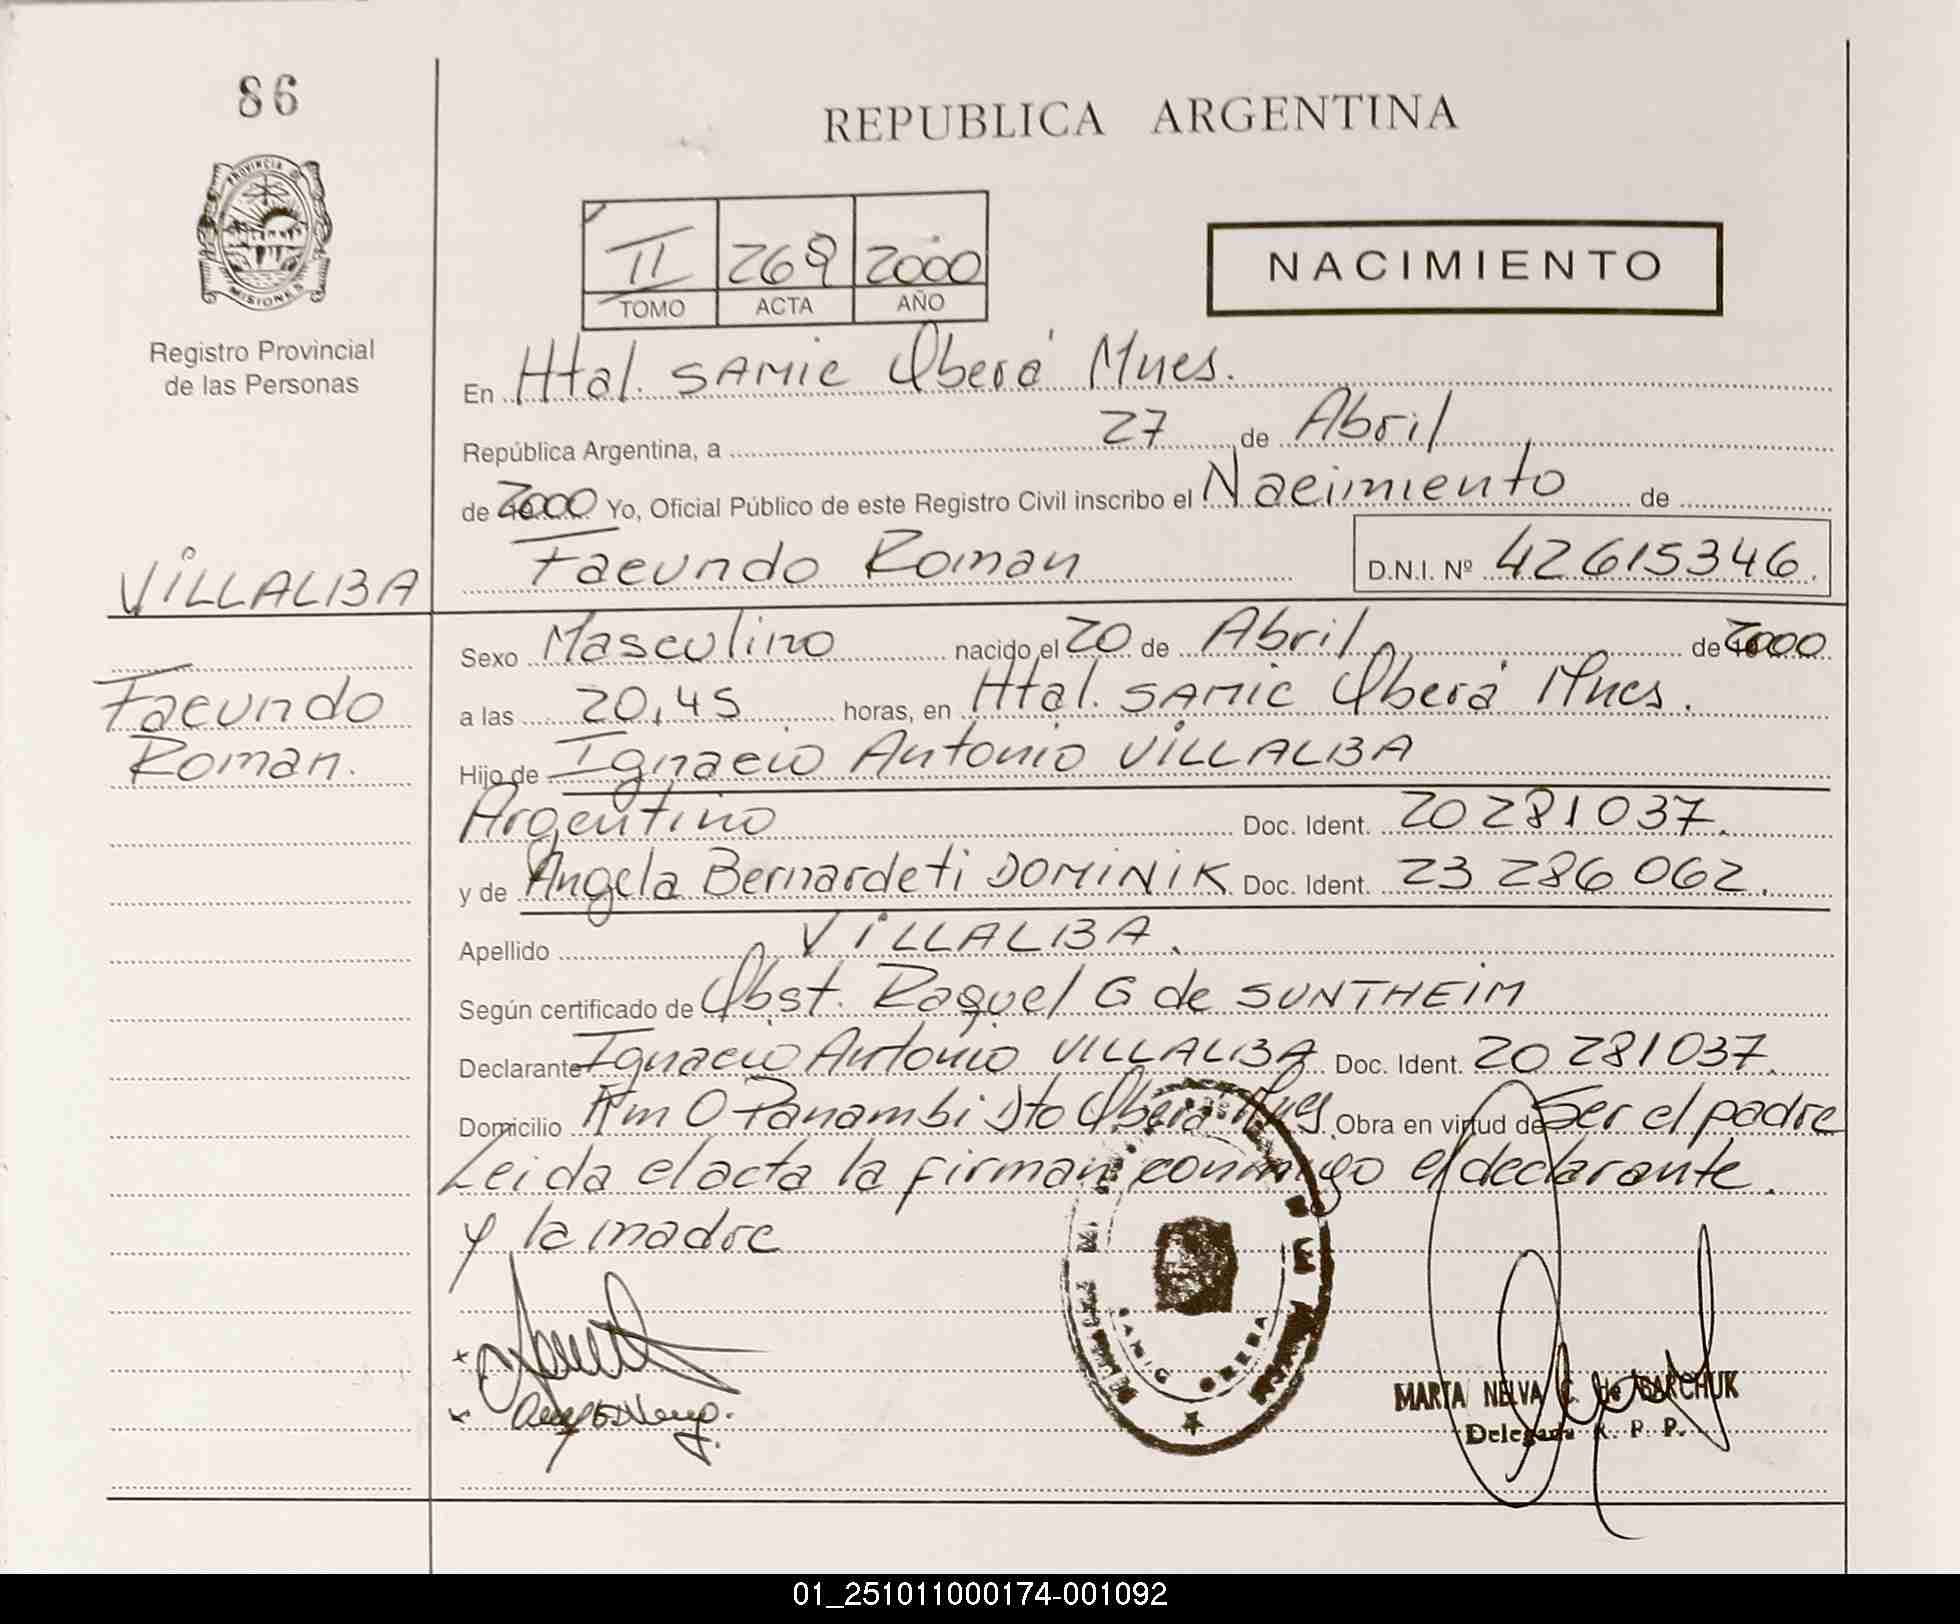 86
REPUBLICA ARGENTINA
PROVINCIA DE
MISIONES
Registro Provincial
de las Personas
II 269 2000
TOMO ACTA AÑO
NACIMIENTO
En Htal. SAMIC Oberá Mnes.
República Argentina, a 27 de Abril
de 2000 Yo, Oficial Público de este Registro Civil inscribo el Nacimiento de
Facundo Roman D.N.I. Nº 42615346.
VILLALBA
Facundo
Roman.
Sexo Masculino nacido el 20 de Abril de 2000
a las 20,45 horas, en Htal. SAMIC Oberá Mnes.
Hijo de Ignacio Antonio VILLALBA
Argentino Doc. Ident. 20281037.
y de Angela Bernardeti DOMINIK Doc. Ident. 23 286 062.
Apellido VILLALBA.
Según certificado de Obst. Raquel G de SUNTHEIM
Declarante Ignacio Antonio VILLALBA Doc. Ident. 20 281037.
Domicilio Km 0 Panambi Dto Oberá Mnes Obra en virtud de Ser el padre
Leida el acta la firman conmigo el declarante
y la madre
SAMIC OBERA
MARTA NELVA C. de SARCHUK
Delegada R. P. P.
01_251011000174-001092